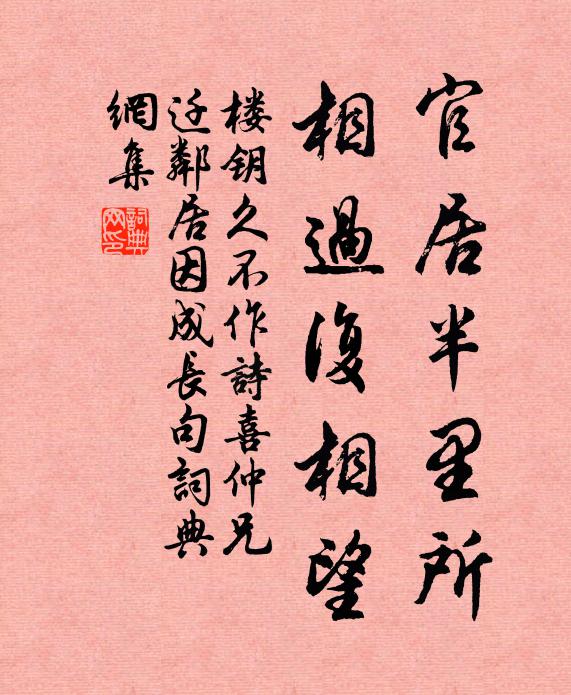 官居半里所
相過復相望
楼钥久不作詩喜仲兄
迁鄰居因成長句詞典
網集
詞典
网印